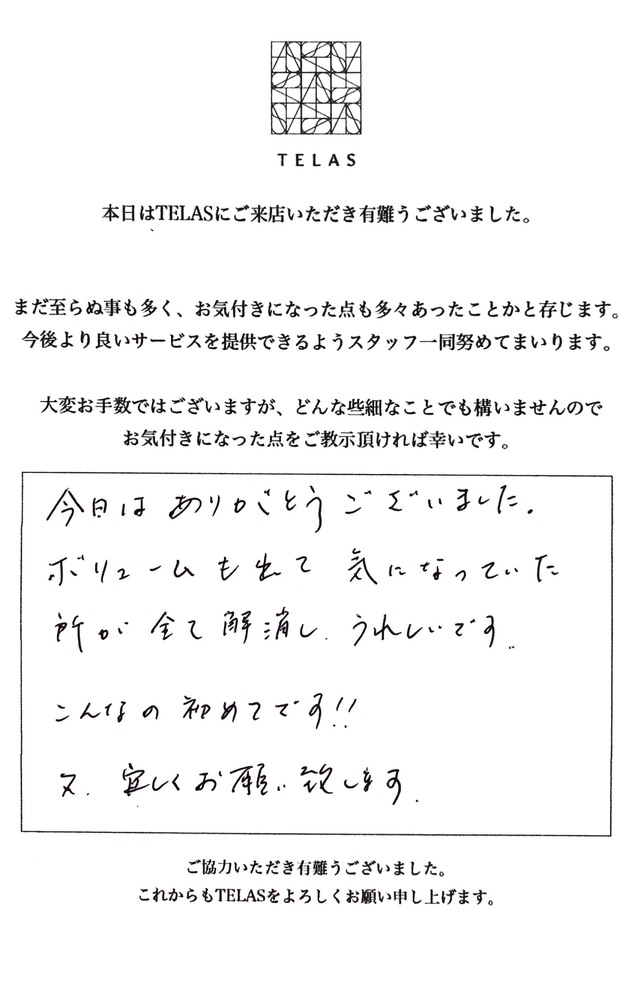 TELAS
本日はTELASにご来店いただき有難うございました。
まだ至らぬ事も多く、お気付きになった点も多々あったことかと存じます。
今後より良いサービスを提供できるようスタッフ一同努めてまいります。
大変お手数ではございますが、どんな些細なことでも構いませんので
お気付きになった点をご教示頂ければ幸いです。
今日は ありがとう ございました。
ボリュームも出て 気になっていた
所が 全て 解消し、うれしいです。
こんなの 初めてです!!
又、宜しくお願い致します。
ご協力いただき有難うございました。
これからもTELASをよろしくお願い申し上げます。